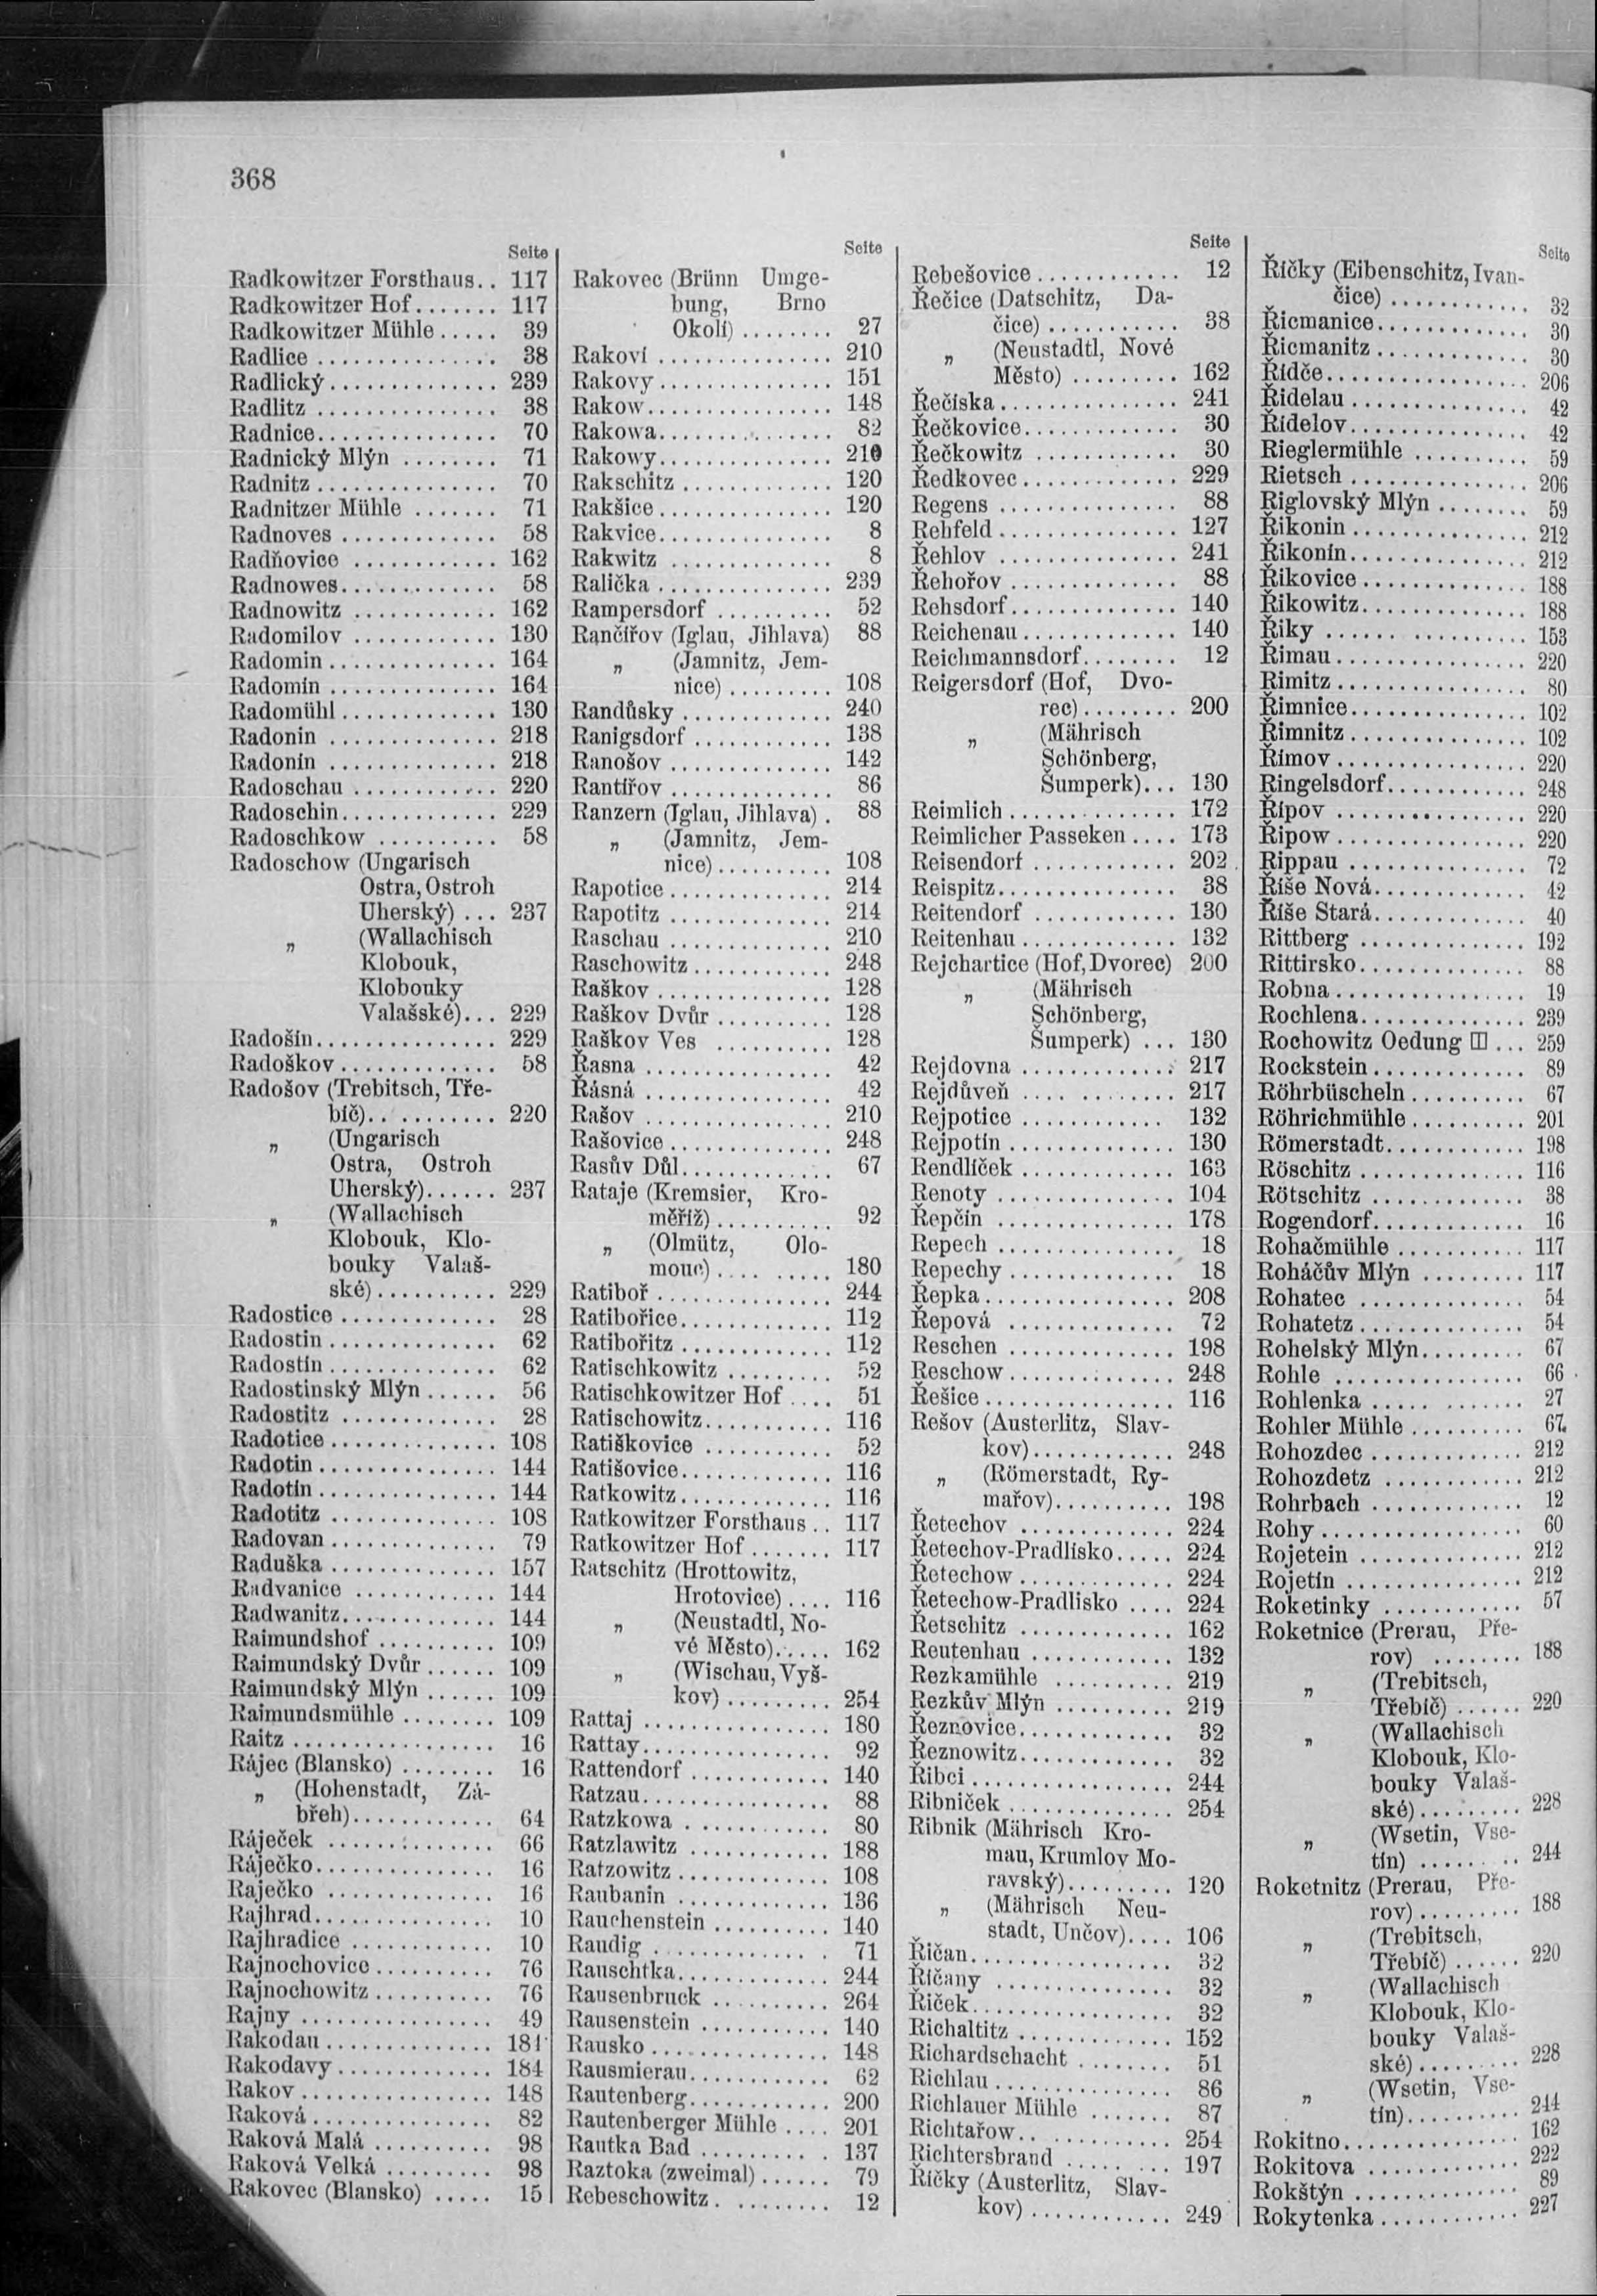 368
Seite
Radkowitzer Forsthaus.. 117
Radkowitzer Hof....... 117
Radkowitzer Mühle..... 39
Radlice ................ 38
Radlický............... 239
Radlitz ................ 38
Radnice................ 70
Radnický Mlýn ........ 71
Radnitz ................ 70
Radnitzer Mühle ....... 71
Radnoves .............. 58
Radňovice ............. 162
Radnowes.............. 58
Radnowitz ............. 162
Radomilov ............. 130
Radomin............... 164
Radomín ............... 164
Radomühl.............. 130
Radonin ............... 218
Radonín ............... 218
Radoschau ............. 220
Radoschin.............. 229
Radoschkow ........... 58
Radoschow (Ungarisch
Ostra, Ostroh
Uherský) ... 237
„ (Wallachisch
Klobouk,
Klobouky
Valašské)... 229
Radošín................ 229
Radoškov.............. 58
Radošov (Trebitsch, Tře-
bíč)............ 220
„ (Ungarisch
Ostra, Ostroh
Uherský)...... 237
„ (Wallachisch
Klobouk, Klo-
bouky Valaš-
ské)........... 229
Radostice .............. 28
Radostin ............... 62
Radostín ............... 62
Radostinský Mlýn ...... 56
Radostitz .............. 28
Radotice ............... 108
Radotin................ 144
Radotín ................ 144
Radotitz ............... 108
Radovan ............... 79
Raduška ............... 157
Radvanice ............. 144
Radwanitz.............. 144
Raimundshof ........... 109
Raimundský Dvůr...... 109
Raimundský Mlýn ...... 109
Raimundsmühle ........ 109
Raitz .................. 16
Rájec (Blansko) ........ 16
„ (Hohenstadt, Zá-
břeh)............. 64
Ráječek ............... 66
Ráječko................ 16
Raječko ............... 16
Rajhrad................ 10
Rajhradice ............. 10
Rajnochovice........... 76
Rajnochowitz........... 76
Rajny ................. 49
Rakodau............... 184
Rakodavy.............. 184
Rakov................. 148
Raková................ 82
Raková Malá ........... 98
Raková Velká .......... 98
Rakovec (Blansko) ..... 15
Seite
Rakovec (Brünn Umge-
bung, Brno
Okolí) ........ 27
Rakoví ................ 210
Rakovy................ 151
Rakow................. 148
Rakowa................ 82
Rakowy................ 210
Rakschitz .............. 120
Rakšice................ 120
Rakvice................ 8
Rakwitz ............... 8
Ralička ................ 239
Rampersdorf ........... 52
Rančířov (Iglau, Jihlava) 88
„ (Jamnitz, Jem-
nice) ......... 108
Randůsky .............. 240
Ranigsdorf ............. 138
Ranošov ............... 142
Rantířov ............... 86
Ranzern (Iglau, Jihlava) . 88
„ (Jamnitz, Jem-
nice)........... 108
Rapotice ............... 214
Rapotitz ............... 214
Raschau ............... 210
Raschowitz............. 248
Raškov ................ 128
Raškov Dvůr ........... 128
Raškov Ves ........... 128
Řasna ................. 42
Řásná ................. 42
Rašov ................. 210
Rašovice............... 248
Rasův Důl............. 67
Rataje (Kremsier, Kro-
měříž)........... 92
„ (Olmütz, Olo-
mouc).......... 180
Ratiboř ................ 244
Ratibořice.............. 112
Ratibořitz .............. 112
Ratischkowitz .......... 52
Ratischkowitzer Hof .... 51
Ratischowitz............ 116
Ratiškovice ............ 52
Ratišovice.............. 116
Ratkowitz.............. 116
Ratkowitzer Forsthaus .. 117
Ratkowitzer Hof ....... 117
Ratschitz (Hrottowitz,
Hrotovice) .... 116
„ (Neustadtl, No-
vé Město)...... 162
„ (Wischau, Vyš-
kov) .......... 254
Rattaj ................. 180
Rattay................. 92
Rattendorf ............. 140
Ratzau................. 88
Ratzkowa .............. 80
Ratzlawitz ............. 188
Ratzowitz .............. 108
Raubanin .............. 136
Rauchenstein ........... 140
Raudig ................ 71
Rauschtka.............. 244
Rausenbruck ........... 264
Rausenstein ............ 140
Rausko ................ 148
Rausmierau............. 62
Rautenberg............. 200
Rautenberger Mühle .... 201
Rautka Bad ............ 137
Raztoka (zweimal)...... 79
Rebeschowitz........... 12
Seite
Rebešovice............. 12
Řečice (Datschitz, Da-
čice) ............ 38
„ (Neustadtl, Nové
Město) .......... 162
Řečíska................ 241
Řečkovice.............. 30
Řečkowitz ............. 30
Ředkovec.............. 229
Regens ................ 88
Rehfeld................ 127
Řehlov ................ 241
Řehořov ............... 88
Rehsdorf............... 140
Reichenau.............. 140
Reichmannsdorf........ 12
Reigersdorf (Hof, Dvo-
rec)........ 200
„ (Mährisch
Schönberg,
Šumperk)... 130
Reimlich ............... 172
Reimlicher Passeken .... 173
Reisendorf ............. 202
Reispitz................ 38
Reitendorf ............. 130
Reitenhau.............. 132
Rejchartice (Hof, Dvorec) 200
„ (Mährisch
Schönberg,
Šumperk) ... 130
Rejdovna .............. 217
Rejdůveň .............. 217
Rejpotice .............. 132
Rejpotín ............... 130
Rendlíček .............. 163
Renoty ................ 104
Řepčín ................ 178
Repech ................ 18
Repechy............... 18
Řepka................. 208
Řepová ............... 72
Reschen ............... 198
Reschow ............... 248
Řešice................. 116
Rešov (Austerlitz, Slav-
kov)............. 248
„ (Römerstadt, Ry-
mařov)........... 198
Řetechov .............. 224
Řetechov-Pradlísko..... 224
Řetechow.............. 224
Řetechow-Pradlisko .... 224
Řetschitz .............. 162
Reutenhau ............. 132
Rezkamühle ........... 219
Rezkův Mlýn ........... 219
Řeznovice.............. 32
Řeznowitz.............. 32
Řibci.................. 244
Ribníček ............... 254
Ribnik (Mährisch Kro-
mau, Krumlov Mo-
ravský).......... 120
„ (Mährisch Neu-
stadt, Unčov).... 106
Řičan.................. 32
Říčany ................ 32
Řiček.................. 32
Richaltitz .............. 152
Richardschacht ........ 51
Richlau ................ 86
Richlauer Mühle ....... 87
Richtařow.............. 254
Richtersbrand .......... 197
Říčky (Austerlitz, Slav-
kov) ............. 249
Seite
Říčky (Eibenschitz, Ivan-
čice) ............ 32
Řicmanice.............. 30
Řicmanitz .............. 30
Řídče.................. 206
Řidelau ................ 42
Řídelov................ 42
Rieglermühle .......... 59
Rietsch ................ 206
Riglovský Mlýn ........ 59
Řikonin ................ 212
Řikonín................ 212
Říkovice ............... 188
Řikowitz............... 188
Řiky .................. 153
Řimau................. 220
Rimitz ................. 80
Řimnice................ 102
Řimnitz ................ 102
Římov................. 220
Ringelsdorf............. 248
Řípov ................. 220
Řipow................. 220
Rippau ................ 72
Říše Nová.............. 42
Říše Stará.............. 40
Rittberg ............... 192
Rittirsko............... 88
Robna................. 19
Rochlena............... 239
Rochowitz Oedung ... 259
Rockstein.............. 89
Röhrbüscheln .......... 67
Röhrichmühle .......... 201
Römerstadt............. 198
Röschitz ............... 116
Rötschitz .............. 38
Rogendorf.............. 16
Rohačmühle ........... 117
Roháčův Mlýn ......... 117
Rohatec ............... 54
Rohatetz............... 54
Rohelský Mlýn......... 67
Rohle ................. 66
Rohlenka .............. 27
Rohler Mühle .......... 67
Rohozdec .............. 212
Rohozdetz ............. 212
Rohrbach .............. 12
Rohy.................. 60
Rojetein ............... 212
Rojetín ................ 212
Roketinky ............. 57
Roketnice (Prerau, Pře-
rov) ........ 188
„ (Trebitsch,
Třebíč) ...... 220
„ (Wallachisch
Klobouk, Klo-
bouky Valaš-
ské)......... 228
„ (Wsetin, Vse-
tín) ......... 244
Roketnitz (Prerau, Pře-
rov)......... 188
„ (Trebitsch,
Třebíč) ...... 220
„ (Wallachisch
Klobouk, Klo-
bouky Valaš-
ské)......... 228
„ (Wsetin, Vse-
tín).......... 244
Rokitno................ 162
Rokitova .............. 222
Rokštýn ............... 89
Rokytenka............. 227